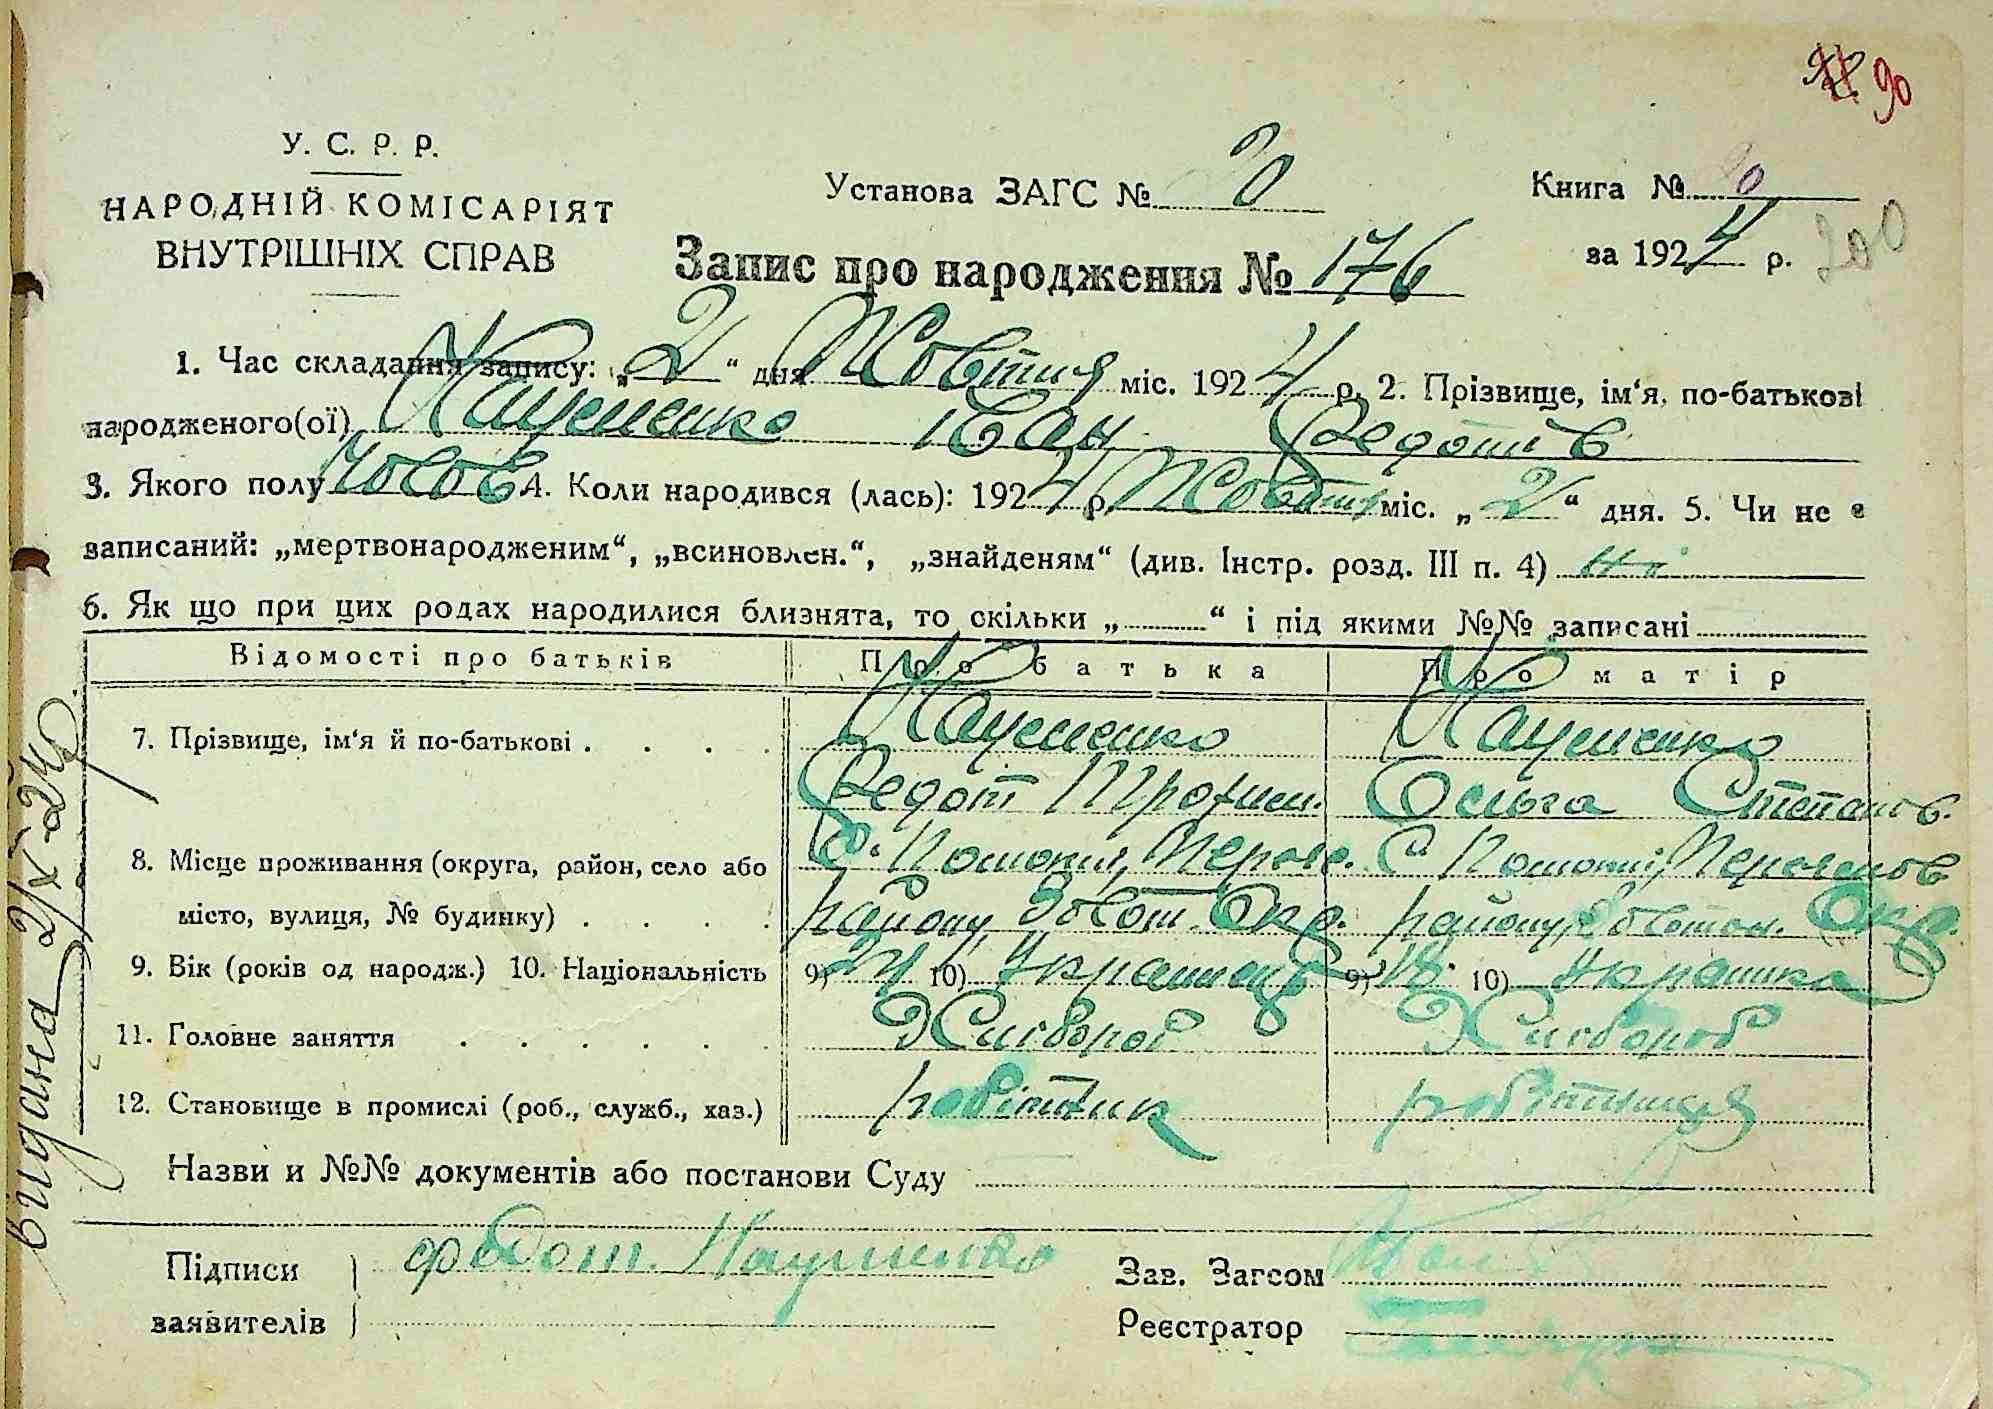 90
У. С. Р. Р.
НАРОДНІЙ КОМІСАРІЯТ
ВНУТРІШНІХ СПРАВ
Установа ЗАГС № 20
Книга №
за 1924 р. 200
Запис про народження № 176
1. Час складання запису: „2“ дня Жовтня міс. 1924 р. 2. Прізвище, ім‘я, по-батькові
народженого(ої) Науменко Іван Федотів
3. Якого полу Чолов 4. Коли народився (лась): 1924 р. Жовтня міс. „2“ дня. 5. Чи не є
записаний: „мертвонародженим“, „всиновлен.“, „знайденям“ (див. Інстр. розд. III п. 4) ні
6. Як що при цих родах народилися близнята, то скільки „ “ і під якими №№ записані
Відомості про батьків Про батька Про матір
7. Прізвище, ім‘я й по-батькові . . . . Науменко Науменко
Федот Трохим. Ольга Степанов.
8. Місце проживання (округа, район, село або
місто, вулиця, № будинку) . . . . району Золот. Окр. району, Золотон. Окр.
9. Вік (років од народж.) 10. Національність 9) 24 10) Українець 9) 18 10) Українка
11. Головне заняття . . . . . . Хлібороб Хлібороб
12. Становище в промислі (роб., служб., хаз.) робітник робітниця
Назви и №№ документів або постанови Суду
Підписи Федот. Науменко Зав. Загсом
заявителів Реєстратор
видана 2/X-24р.